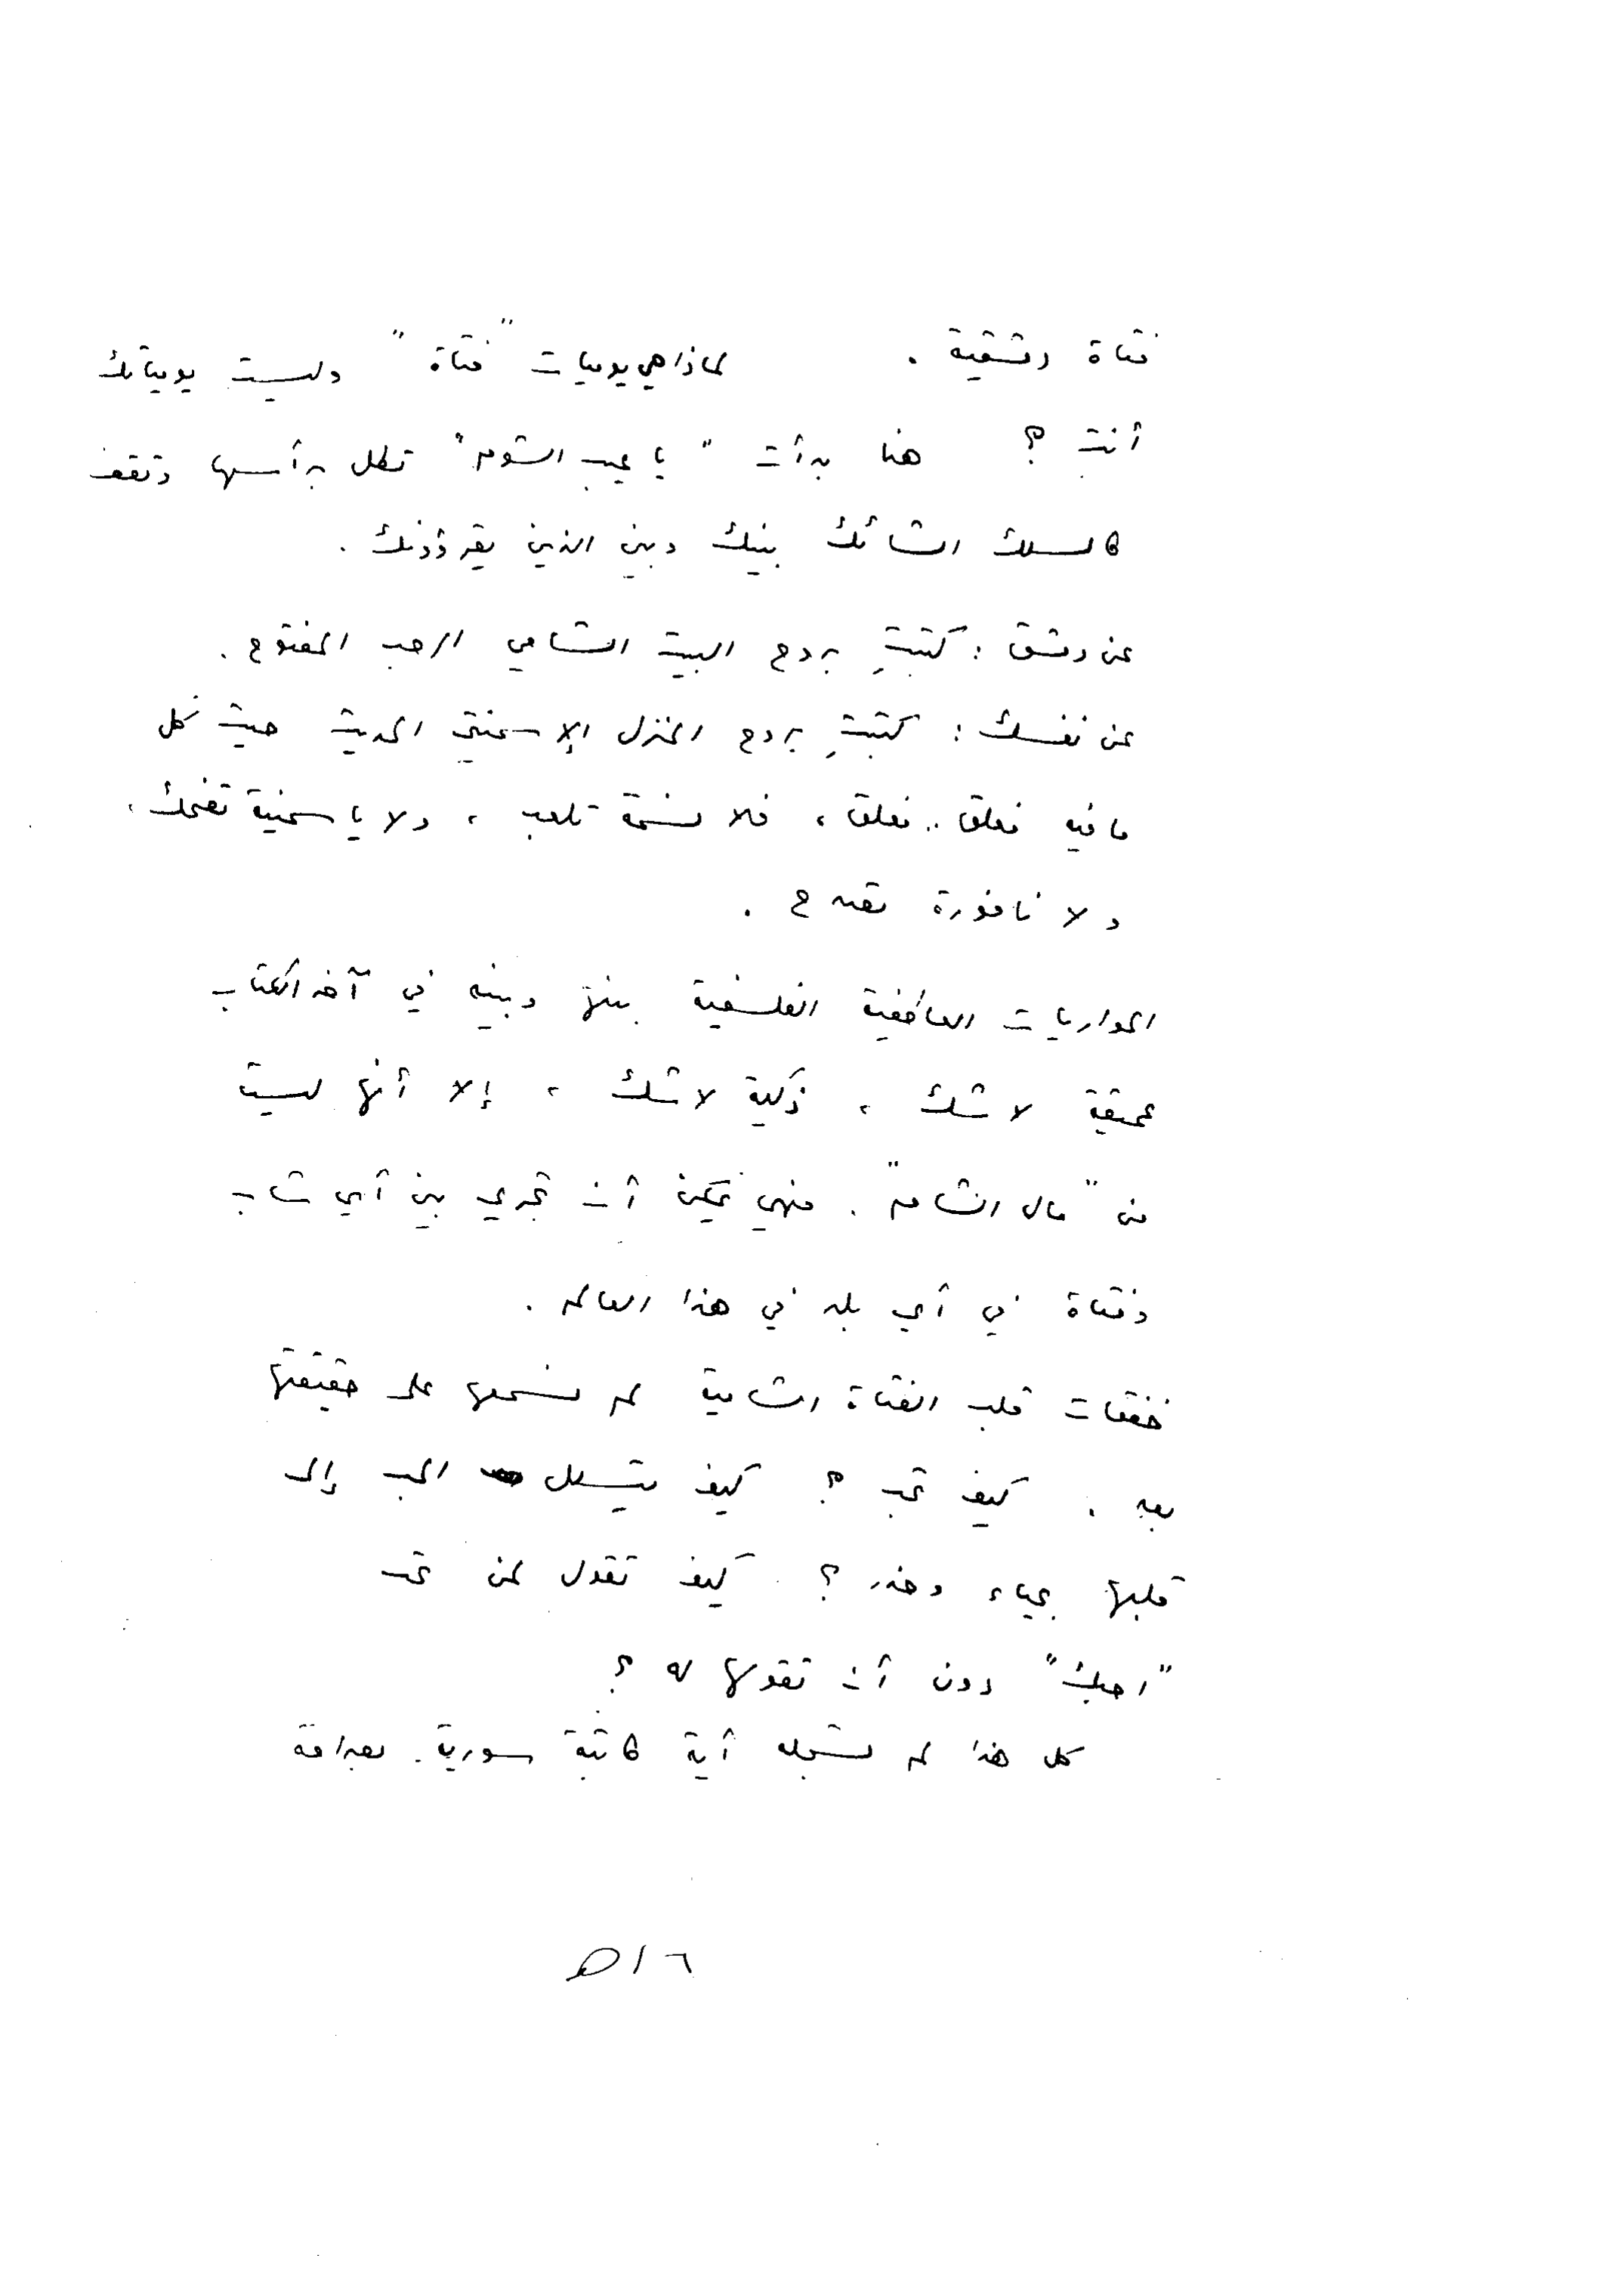 فتاة دمشقية . لماذا هي يوميات "فتاة" وليست يومياتك
أنتِ ؟ هنا بدأت "يا عيب الشوم" تطل برأسها وتقف
كالسلك الشائك بينك وبين الذين يقرؤونك .
عن دمشق : كتبتِ بروح البيت الشامي الرحب المفتوح .
عن نفسك : كتبتِ بروح المنزل الإسمنتي الحديث حيث كل
ما فيه مغلق .. مغلق ، فلا نسمة تلعب ، ولا ياسمينة تضحك ،
ولا نافورة تصدح .
الحواريات العاطفية الفلسفية بينها وبينه في آخر الكتاب
عميقة لا شك ، ذكية لا شك ، إلا أنها ليست
من "مال الشام" . فهي يمكن أن تجري بين أي شاب
وفتاة في أي بلد في هذا العالم .
خفقات قلب الفتاة الشامية لم نسمعها على حقيقتها
بعد . كيف تحب ؟ كيف يتسلل الحب إلى
قلبها بحياء وخدر ؟ كيف تقول لمن تحب
"احبك" دون أن تقولها له ؟
كل هذا لم تسجله أية كاتبة سورية . بعدامة
٥١٦